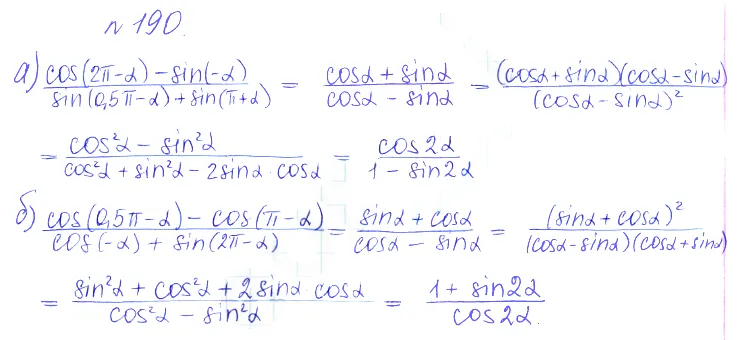 № 190.
а) (cos(2π-α) - sin(-α))/(sin(0,5π-α) + sin(π+α)) = (cosα + sinα)/(cosα - sinα) = ((cosα + sinα)(cosα - sinα))/(cosα - sinα)²
= (cos²α - sin²α)/(cos²α + sin²α - 2sinα · cosα) = cos2α/(1 - sin2α)
б) (cos(0,5π-α) - cos(π-α))/(cos(-α) + sin(2π-α)) = (sinα + cosα)/(cosα - sinα) = (sinα + cosα)²/((cosα - sinα)(cosα + sinα))
= (sin²α + cos²α + 2sinα cosα)/(cos²α - sin²α) = (1 + sin2α)/cos2α.